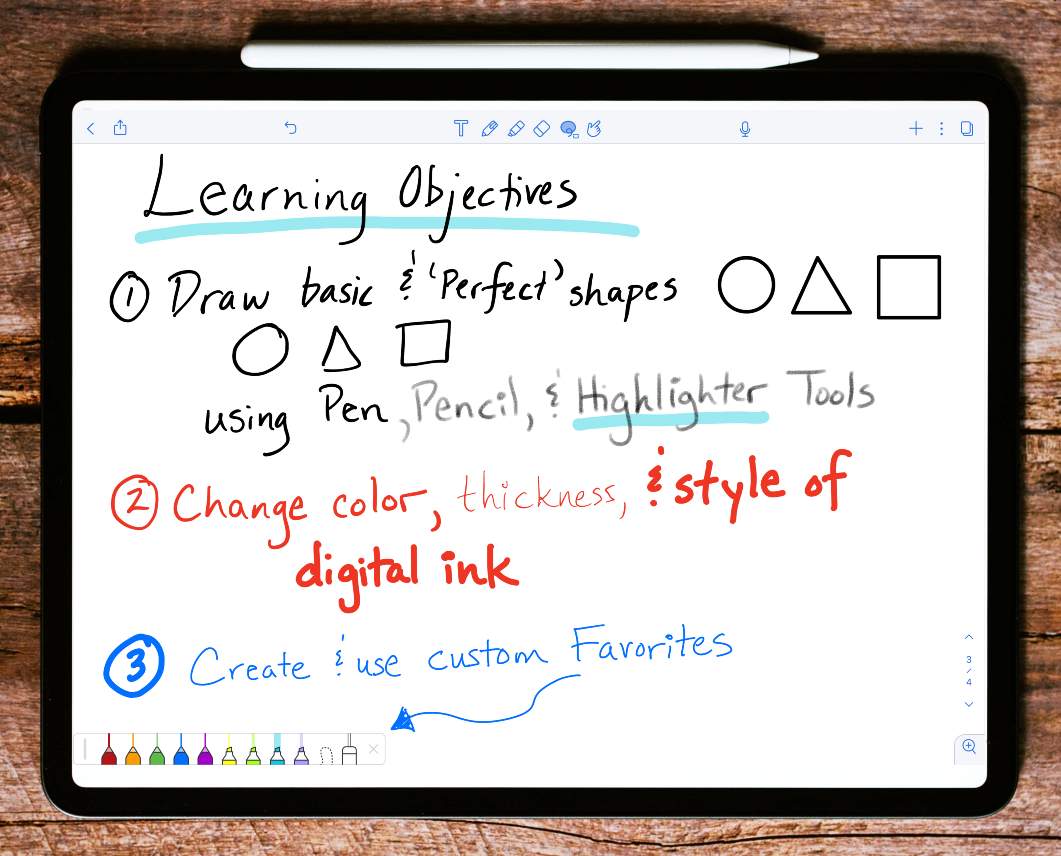 Learning Objectives
① Draw basic & 'Perfect' shapes
using Pen, Pencil, & Highlighter Tools
② Change color, thickness, & style of
digital ink
③ Create & use custom Favorites
3
/
4